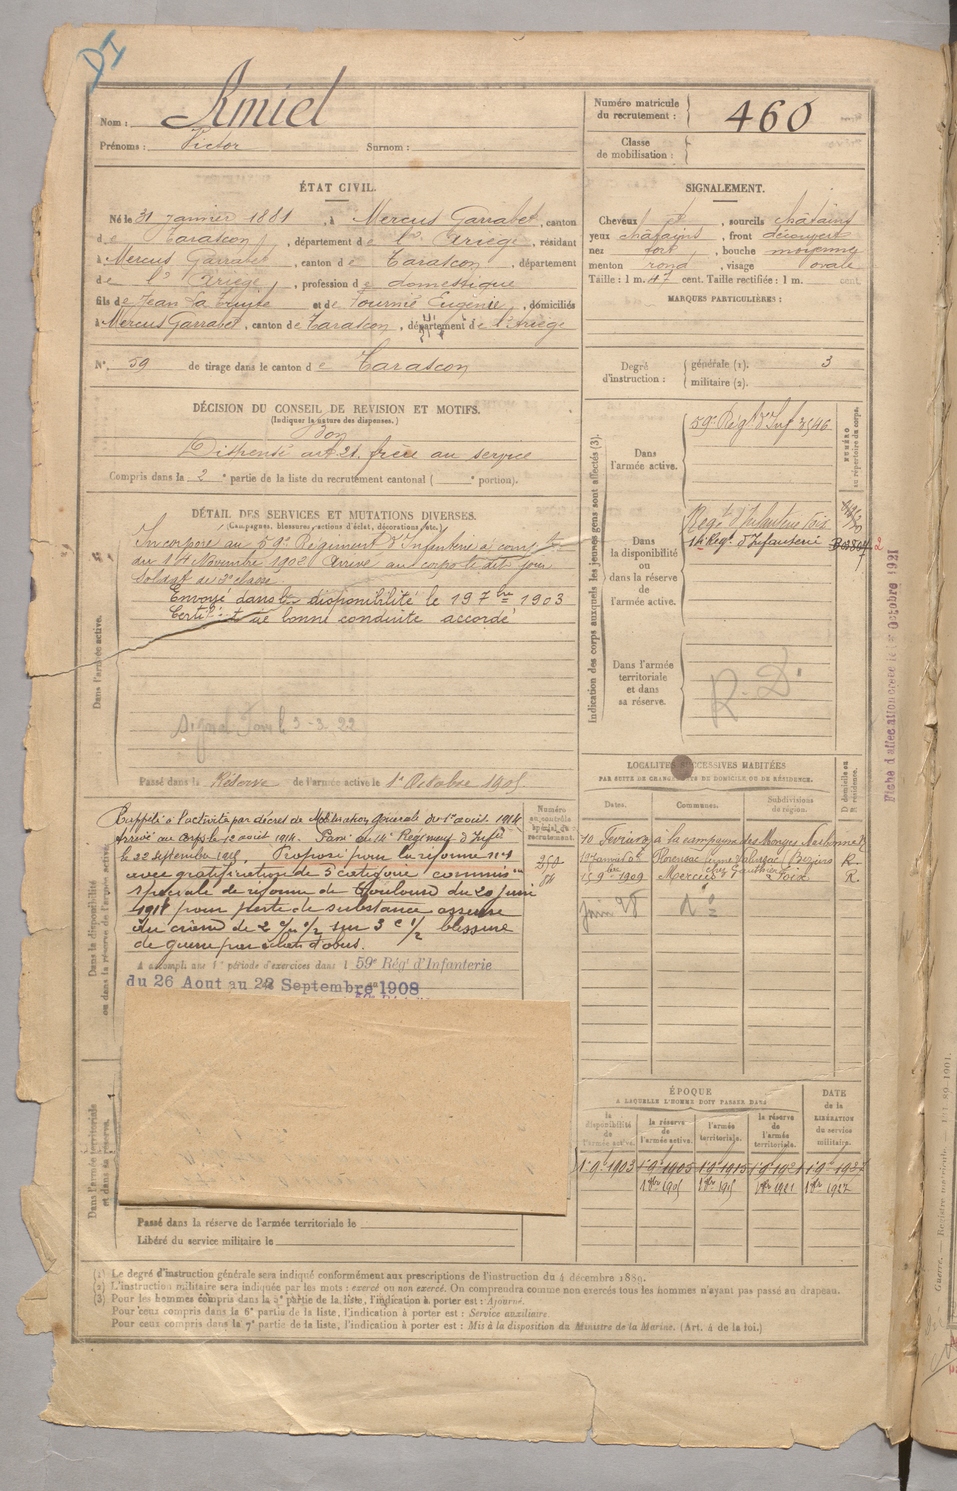 DI
Nom : Amiel
Prénoms : Victor Surnom :
Numéro matricule du recrutement : 460
Classe de mobilisation :
ÉTAT CIVIL.
Né le 31 Janvier 1881, à Mercus Garrabet, canton
de Tarascon, département de l'Ariège, résidant
à Mercus Garrabet, canton de Tarascon, département
de l'Ariège, profession de domestique
fils de Jean et de Fournié Eugénie, domiciliés
à Mercus Garrabet, canton de Tarascon, département de l'Ariège
N° 59 de tirage dans le canton de Tarascon
SIGNALEMENT.
Cheveux sourcils châtains
yeux châtains, front découvert
nez fort, bouche moyenne
menton rond, visage ovale
Taille : 1 m. 47 cent. Taille rectifiée : 1 m. cent.
MARQUES PARTICULIÈRES :
Degré d'instruction : générale (1). 3
militaire (2).
DÉCISION DU CONSEIL DE REVISION ET MOTIFS.
(Indiquer la nature des dispenses.)
Bon
Dispensé art. 21. frère au service
Compris dans la 2e partie de la liste du recrutement cantonal ( e portion).
DÉTAIL DES SERVICES ET MUTATIONS DIVERSES.
(Campagnes, blessures, actions d'éclat, décorations, etc.)
Dans l'armée active.
Incorporé au 59e Régiment d'Infanterie à compter
du 14 Novembre 1902 Arrivé au corps le dit jour
Soldat de 2e classe.
Envoyé dans la disponibilité le 19 7bre 1903
Certificat de bonne conduite accordé
Signal Foix le 3-3-22
Passé dans la Réserve de l'armée active le 1er Octobre 1905
Indication des corps auxquels les jeunes gens sont affectés (3).
NUMÉRO au répertoire du corps.
Dans l'armée active.
59e Régt d'Inf 3546
Dans la disponibilité ou dans la réserve de l'armée active.
Régt d'Infanterie Foix
14 Régt d'Infanterie
Dans l'armée territoriale et dans sa réserve.
R. D.
Fiche d'affectation créée le 1er Octobre 1921
Dans la disponibilité ou dans la réserve de l'armée active.
Numéro au contrôle spécial du recrutement.
Rappelé à l'activité par décret de Mobilisation Générale du 1er août 1914
Arrivé au corps le 12 août 1914. Passé au 14e Régiment d'Infie
le 22 septembre 1915. Proposé pour la réforme n°1
avec gratification de 5e catégorie commision
spéciale de réforme de Toulouse du 20 juin
1917 pour perte de substance osseuse
du crâne de 2 c/m 1/2 sur 3 c 1/2 blessure
de guerre par éclats d'obus.
A accompli une 1e période d'exercices dans l 59e Rég' d'Infanterie
du 26 Aout au 22 Septembre 1908
LOCALITÉS SUCCESSIVES HABITÉES
PAR SUITE DE CHANGEMENTS DE DOMICILE OU DE RÉSIDENCE.
Dates. Communes. Subdivisions de région. D domicile ou R résidence.
10 Février à la campagne des Monges Narbonne R
Florensac Béziers R.
15 9bre 1909 Mercus chez Gauthier Foix R.
Juin 28 d°
ÉPOQUE
A LAQUELLE L'HOMME DOIT PASSER DANS
la disponibilité de l'armée active.
la réserve de l'armée active.
l'armée territoriale.
la réserve de l'armée territoriale.
DATE de la LIBÉRATION du service militaire.
1er 9e 1903 1er 9e 1905 1er 9e 1915 1er 9e 1921 1er 9e 1927
1er 8bre 1905 1er 8bre 1915 1er 8bre 1921 1er 8bre 1927
Dans l'armée territoriale et dans sa réserve.
Passé dans la réserve de l'armée territoriale le
Libéré du service militaire le
(1) Le degré d'instruction générale sera indiqué conformément aux prescriptions de l'instruction du 4 décembre 1889.
(2) L'instruction militaire sera indiquée par les mots : exercé ou non exercé. On comprendra comme non exercés tous les hommes n'ayant pas passé au drapeau.
(3) Pour les hommes compris dans la 5e partie de la liste, l'indication à porter est : Ajourné.
Pour ceux compris dans la 6e partie de la liste, l'indication à porter est : Service auxiliaire.
Pour ceux compris dans la 7e partie de la liste, l'indication à porter est : Mis à la disposition du Ministre de la Marine. (Art. 4 de la loi.)